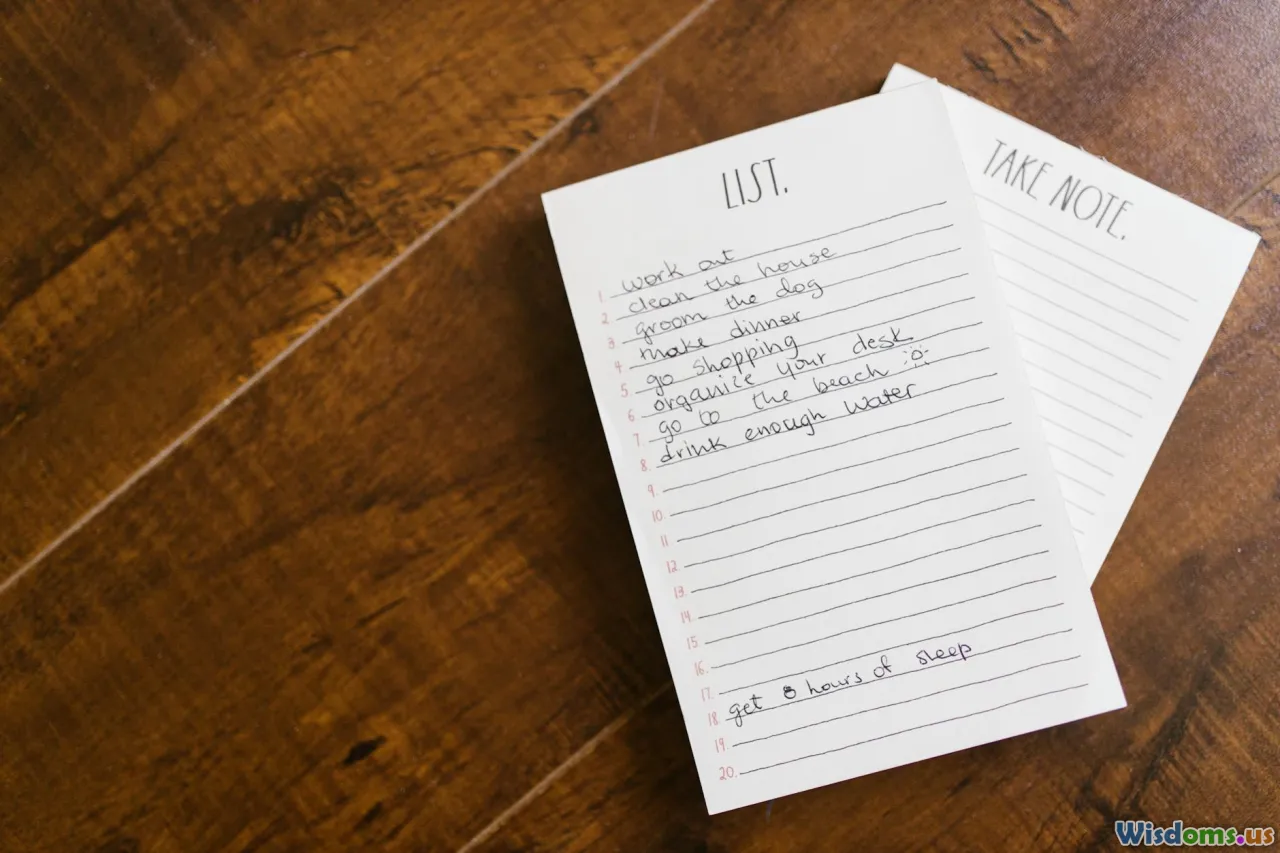 LIST.
1. work out
2. clean the house
3. groom the dog
4. make dinner
5. go shopping
6. organize your desk
7. go to the beach
8. drink enough water
9.
10.
11.
12.
13.
14.
15.
16.
17.
18. get 8 hours of sleep
19.
20.
TAKE NOTE.
Wisdoms.us